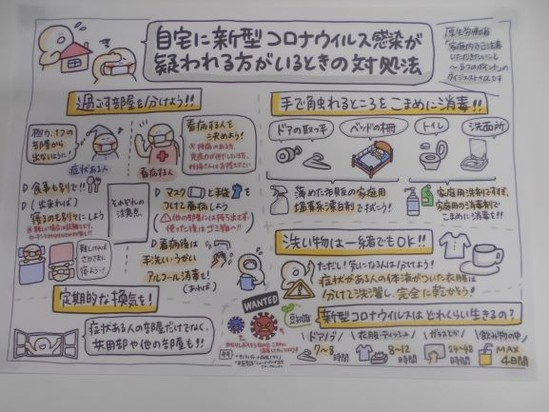 自宅に新型コロナウィルス感染が
疑われる方がいるときの対処法
厚生労働省
過ごす部屋を分けよう!!
極力、1つの
部屋から
出ないように!
症状がある人
看病する人を
決めよう!
看病する人
食事も別で!!
(出来れば)
寝るのも別々にしよう
それぞれの
注意点
マスクと手袋を
つけて看病しよう
他の部屋には持ち出さず、
使った後はゴミ箱へ!!
看病後は
手洗い・うがい
アルコール消毒も!
(あれば)
定期的な換気も!
症状がある人の部屋だけでなく、
共用部や他の部屋も!!
WANTED
手で触れるところをこまめに消毒!!
ドアの取っ手
ベッドの柵
トイレ
洗面所
薄めた市販の家庭用
塩素系漂白剤で拭こう!
家庭用洗剤ですすぎ、
家庭用の消毒剤で
こまめに消毒を!!
洗い物は一緒でもOK!!
ただし!気になる人は分けよう!
症状がある人の体液がついた衣服は
分けて洗濯し、完全に乾かそう!
豆知識
新型コロナウィルスはどれくらい生きるの?
ドアノブ
7~8
時間
衣服・ティッシュ
8~12
時間
24~48
時間
飲み物の中
MAX
4日間